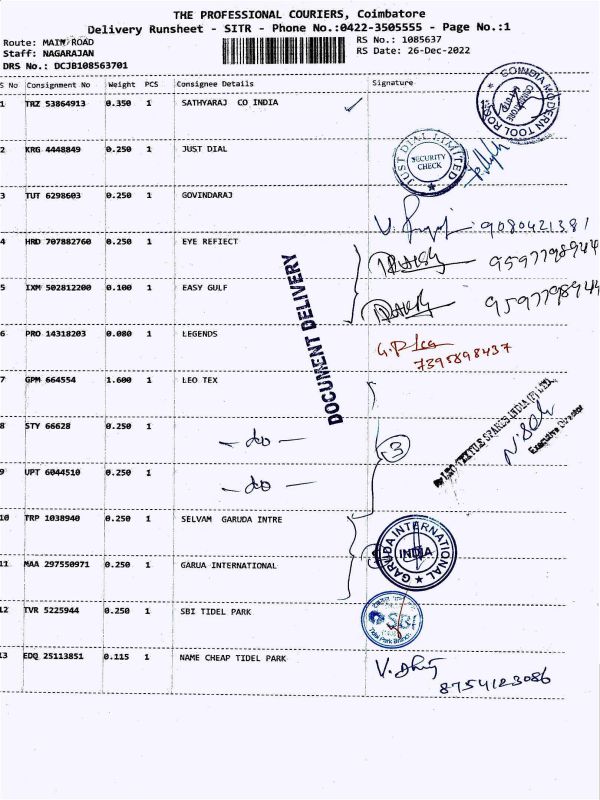 THE PROFESSIONAL COURIERS, Coimbatore
Delivery Runsheet - SITR - Phone No.:0422-3505555 - Page No.:1
Route: MAIN ROAD RS No.: 1085637
Staff: NAGARAJAN RS Date: 26-Dec-2022
DRS No.: DCJB108563701
S No Consignment No Weight PCS Consignee Details Signature
1 TRZ 53864913 0.350 1 SATHYARAJ CO INDIA ✓
COINDIA MODERN TOOL ROOM
2 KRG 4448849 0.250 1 JUST DIAL
JUST DIAL LIMITED
SECURITY
CHECK
3 TUT 6298603 0.250 1 GOVINDARAJ 9080421381
4 HRD 707882760 0.250 1 EYE REFIECT 9597798944
5 IXM 502812200 0.100 1 EASY GULF 9597798944
DOCUMENT DELIVERY
6 PRO 14318203 0.080 1 LEGENDS
7395898437
7 GPM 664554 1.600 1 LEO TEX
8 STY 66628 0.250 1 - do -
3
For LEO TEXTILE SPARES INDIA (P) LTD.
Executive Director
9 UPT 6044510 0.250 1 - do -
10 TRP 1038940 0.250 1 SELVAM GARUDA INTRE
11 MAA 297550971 0.250 1 GARUA INTERNATIONAL
GARUDA INTERNATIONAL
INDIA
12 TVR 5225944 0.250 1 SBI TIDEL PARK
SBI
Tidel Park Branch
13 EDQ 25113851 0.115 1 NAME CHEAP TIDEL PARK
8754123086